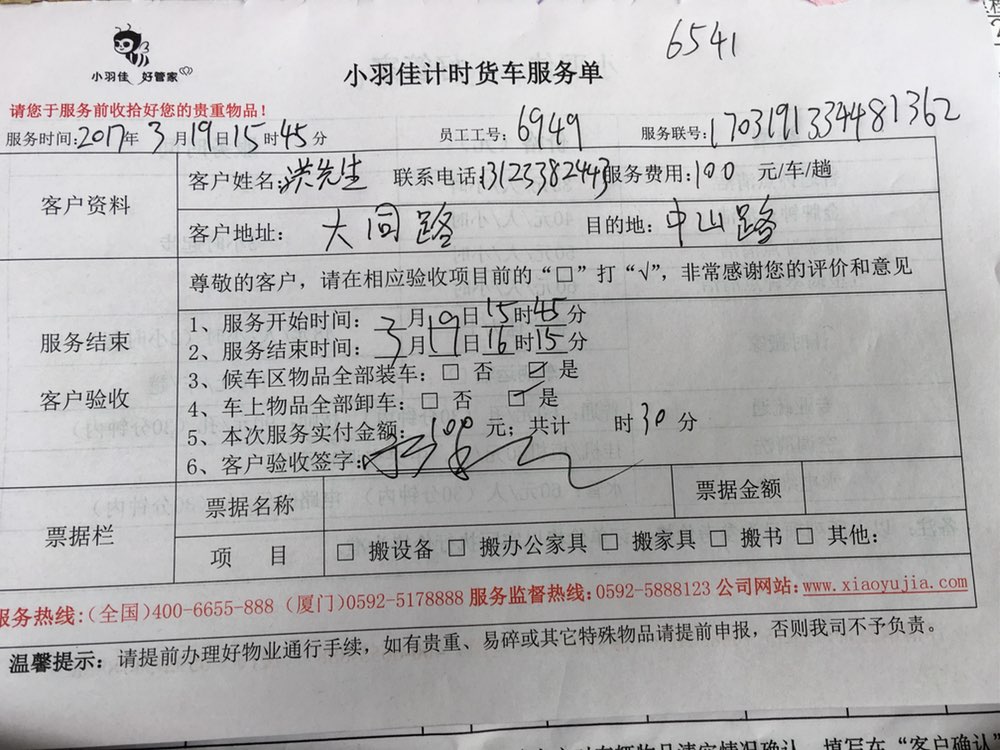 6541
小羽佳 好管家
小羽佳计时货车服务单
请您于服务前收拾好您的贵重物品！
服务时间:2017年 3 月19日15时45分 员工工号: 6949 服务联号:1703191334481362
客户资料
客户姓名:洪先生 联系电话:13123382443服务费用:100 元/车/趟
客户地址: 大同路 目的地: 中山路
服务结束
客户验收
尊敬的客户，请在相应验收项目前的“□”打“√”，非常感谢您的评价和意见
1、服务开始时间: 3月19日15时45分
2、服务结束时间: 3月19日16时15分
3、候车区物品全部装车: □ 否 ☑ 是
4、车上物品全部卸车: □ 否 ☑ 是
5、本次服务实付金额: 100 元; 共计 时30分
6、客户验收签字:
票据栏
票据名称 票据金额
项 目 □ 搬设备 □ 搬办公家具 □ 搬家具 □ 搬书 □ 其他:
服务热线:(全国)400-6655-888 (厦门)0592-5178888 服务监督热线:0592-5888123 公司网站:www.xiaoyujia.com
温馨提示: 请提前办理好物业通行手续，如有贵重、易碎或其它特殊物品请提前申报，否则我司不予负责。